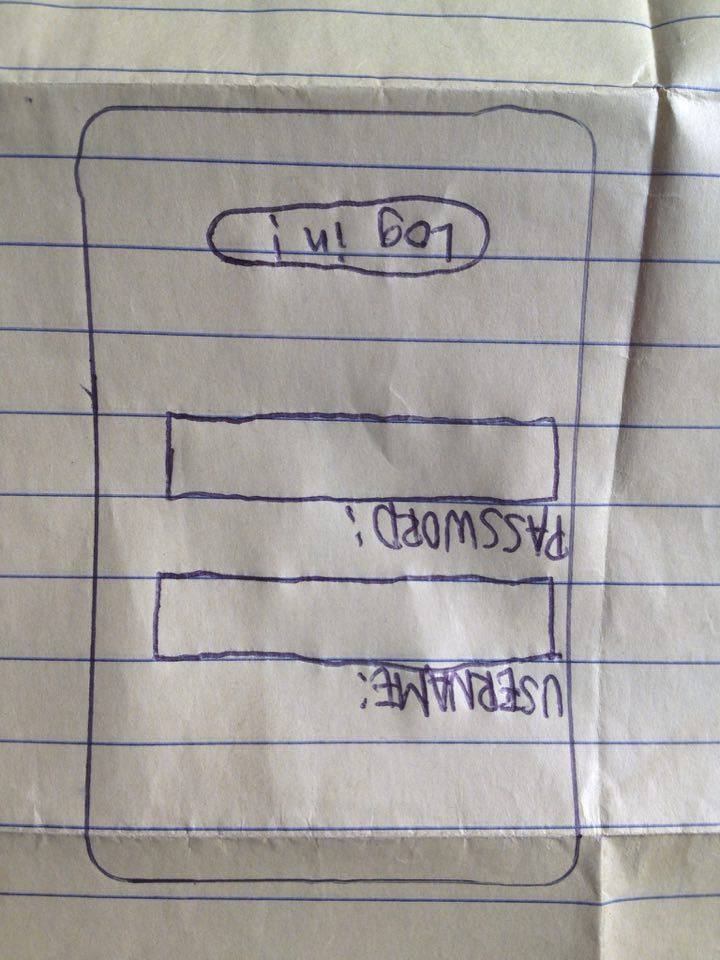 USERNAME:
PASSWORD:
Log in !